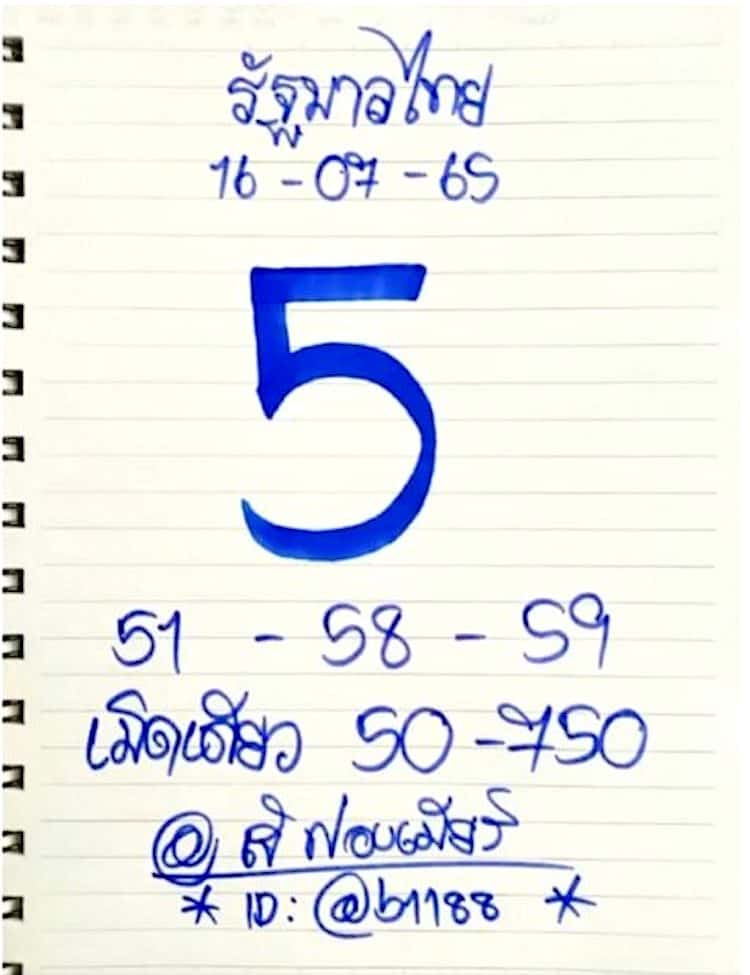 รัฐบาลไทย
16 - 07 - 65
5
51 - 58 - 59
เม็ดเดียว 50 - 750
@
* ID: @b1188 *